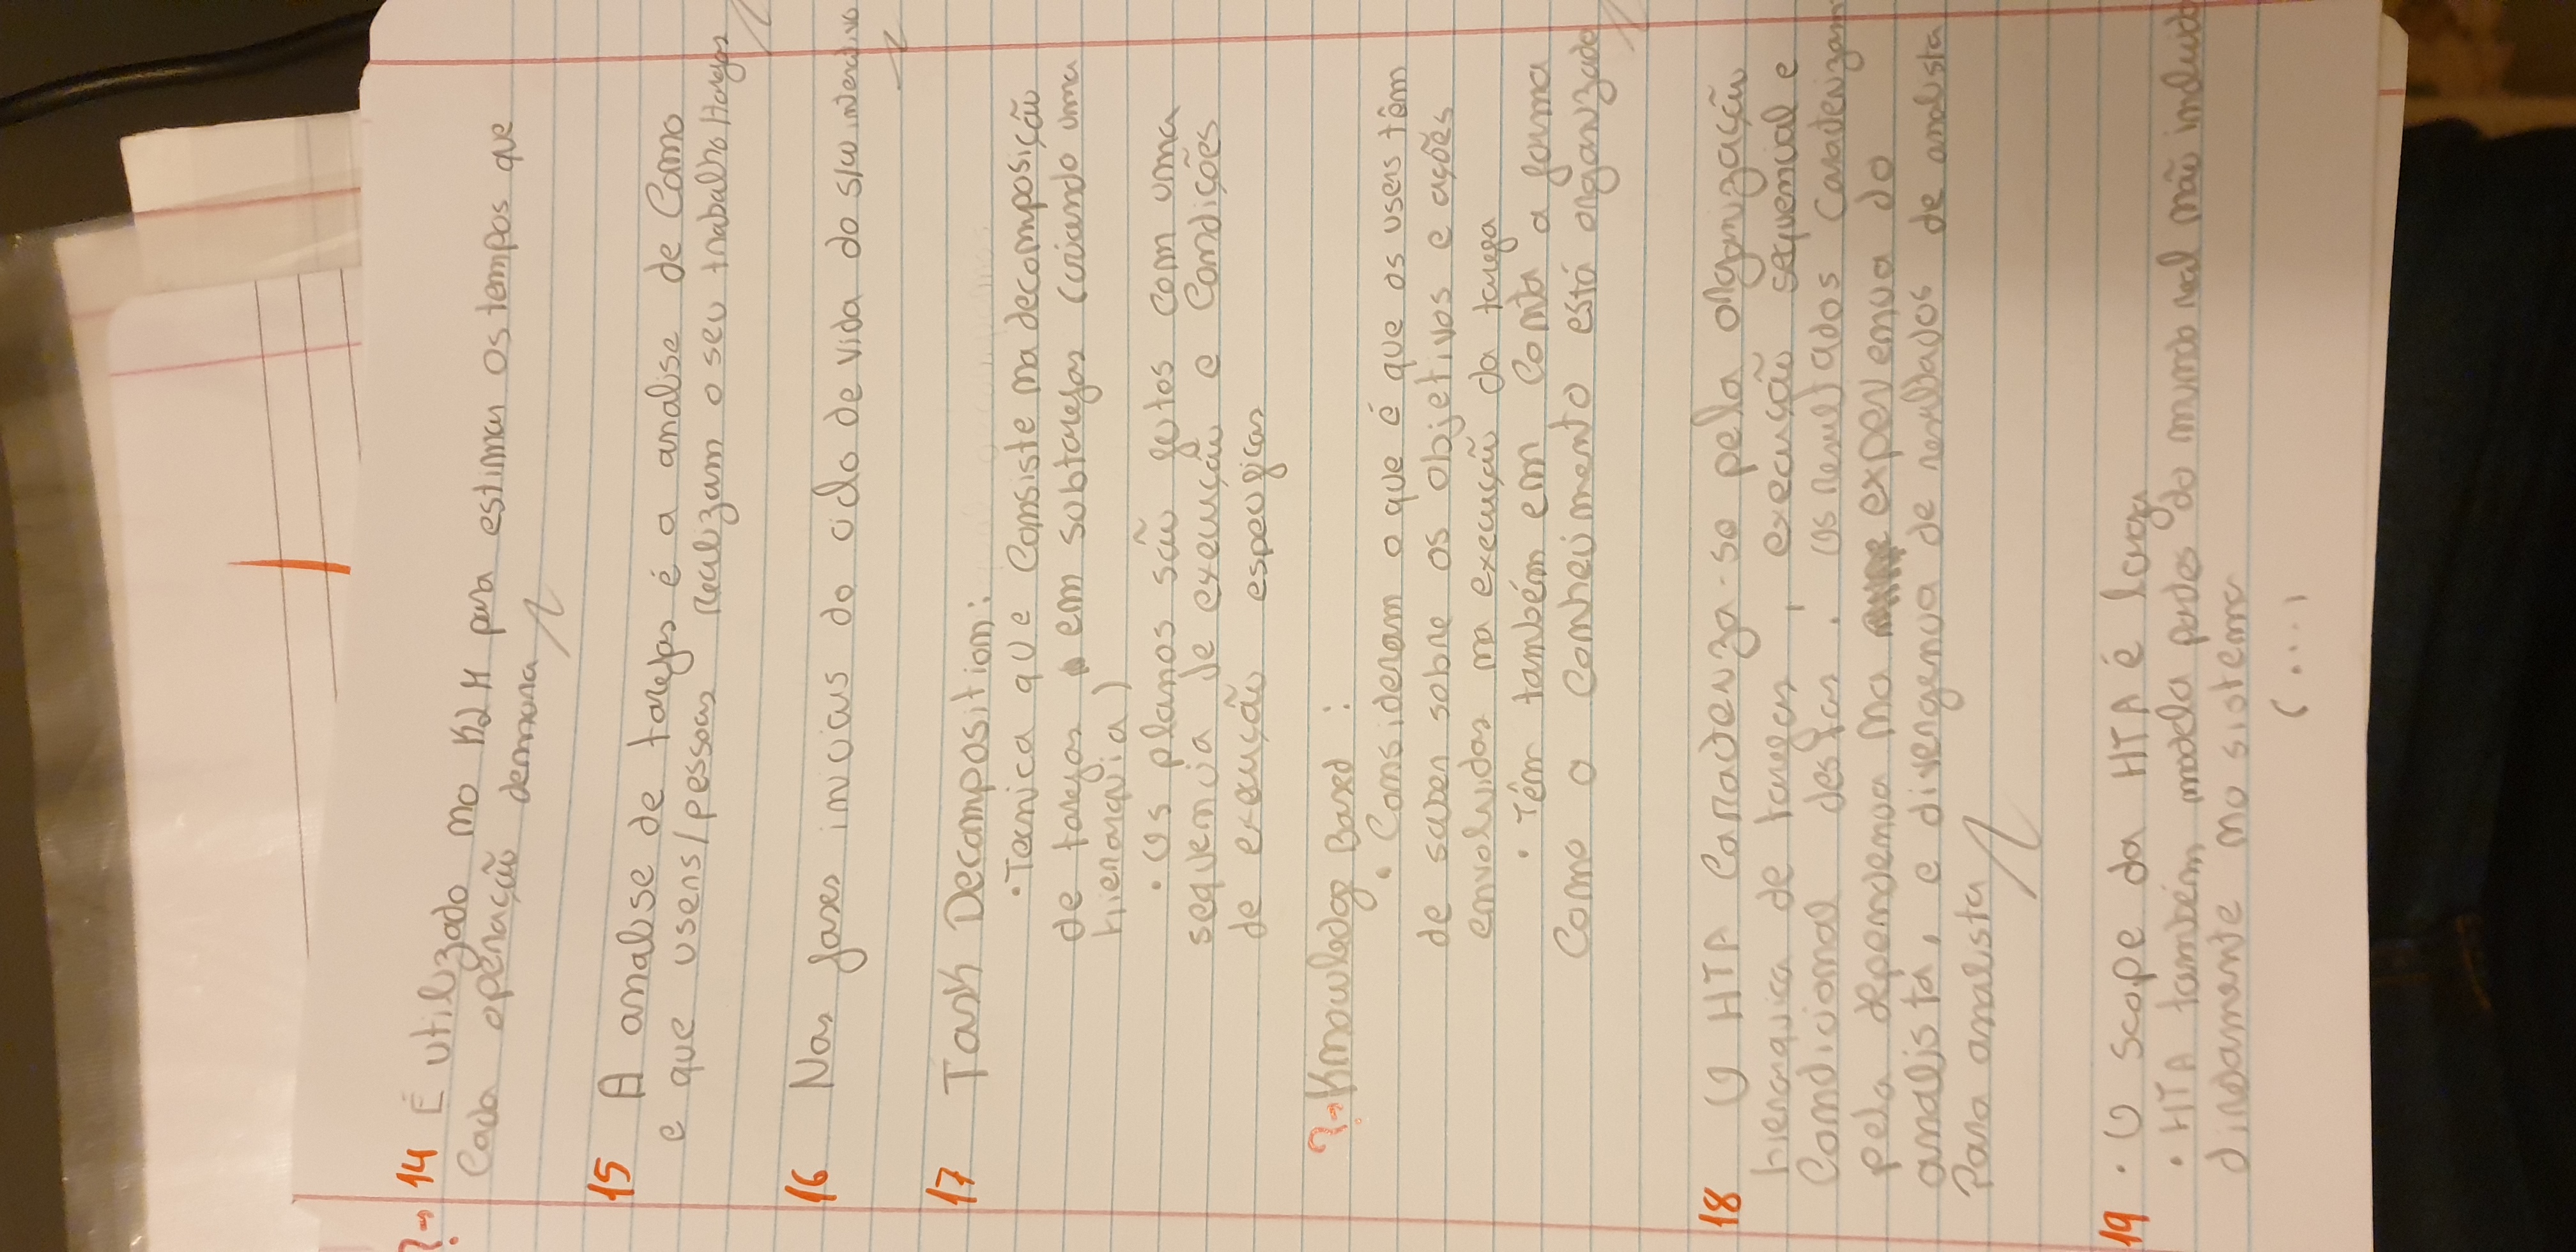 ?→ 14 É utilizado no KLM para estimar os tempos que
cada operação demora
15 A analise de tarefas é a analise de como
e que users/pessoas realizam o seu trabalho
16 Nas fases iniciais do ciclo de vida do s/w interativo
17 Task Decomposition:
• Tecnica que consiste na decomposição
de tarefas em subtarefas (criando uma
hierarquia)
• Os planos são feitos com uma
sequencia de execução e condições
de execução especificas
?→ Knowledge Based :
• Consideram o que é que os users têm
de saber sobre os objetivos e ações
envolvidas na execução da tarefa
• Têm também em conta a forma
como o conhecimento está organizado
18 O HTA caracteriza-se pela organização
hierarquica de tarefas, execução sequencial e
condicional destas. Os resultados caracterizam
pela dependencia na experiencia do
analista, e divergencia de resultados de analista
para analista
19 • O scope da HTA é larga
• HTA também modela partes do mundo real não incluido
diretamente no sistema
(...)